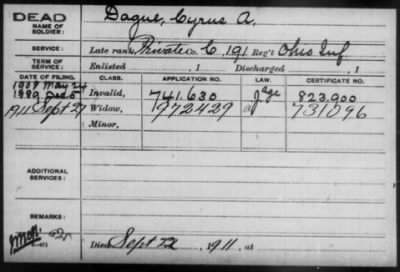 DEAD
NAME OF SOLDIER: Dague, Cyrus A.
SERVICE: Late rank, Private Co. C, 191 Reg't Ohio Inf
TERM OF SERVICE: Enlisted , 1 Discharged , 1
DATE OF FILING. CLASS. APPLICATION NO. LAW. CERTIFICATE NO.
1907 May 24
1889 Dec 5 Invalid, 741.630 Jage 823.900
1911 Sept 27 Widow, 972429 731096
Minor,
ADDITIONAL SERVICES:
REMARKS:
Died Sept 22, 1911, at